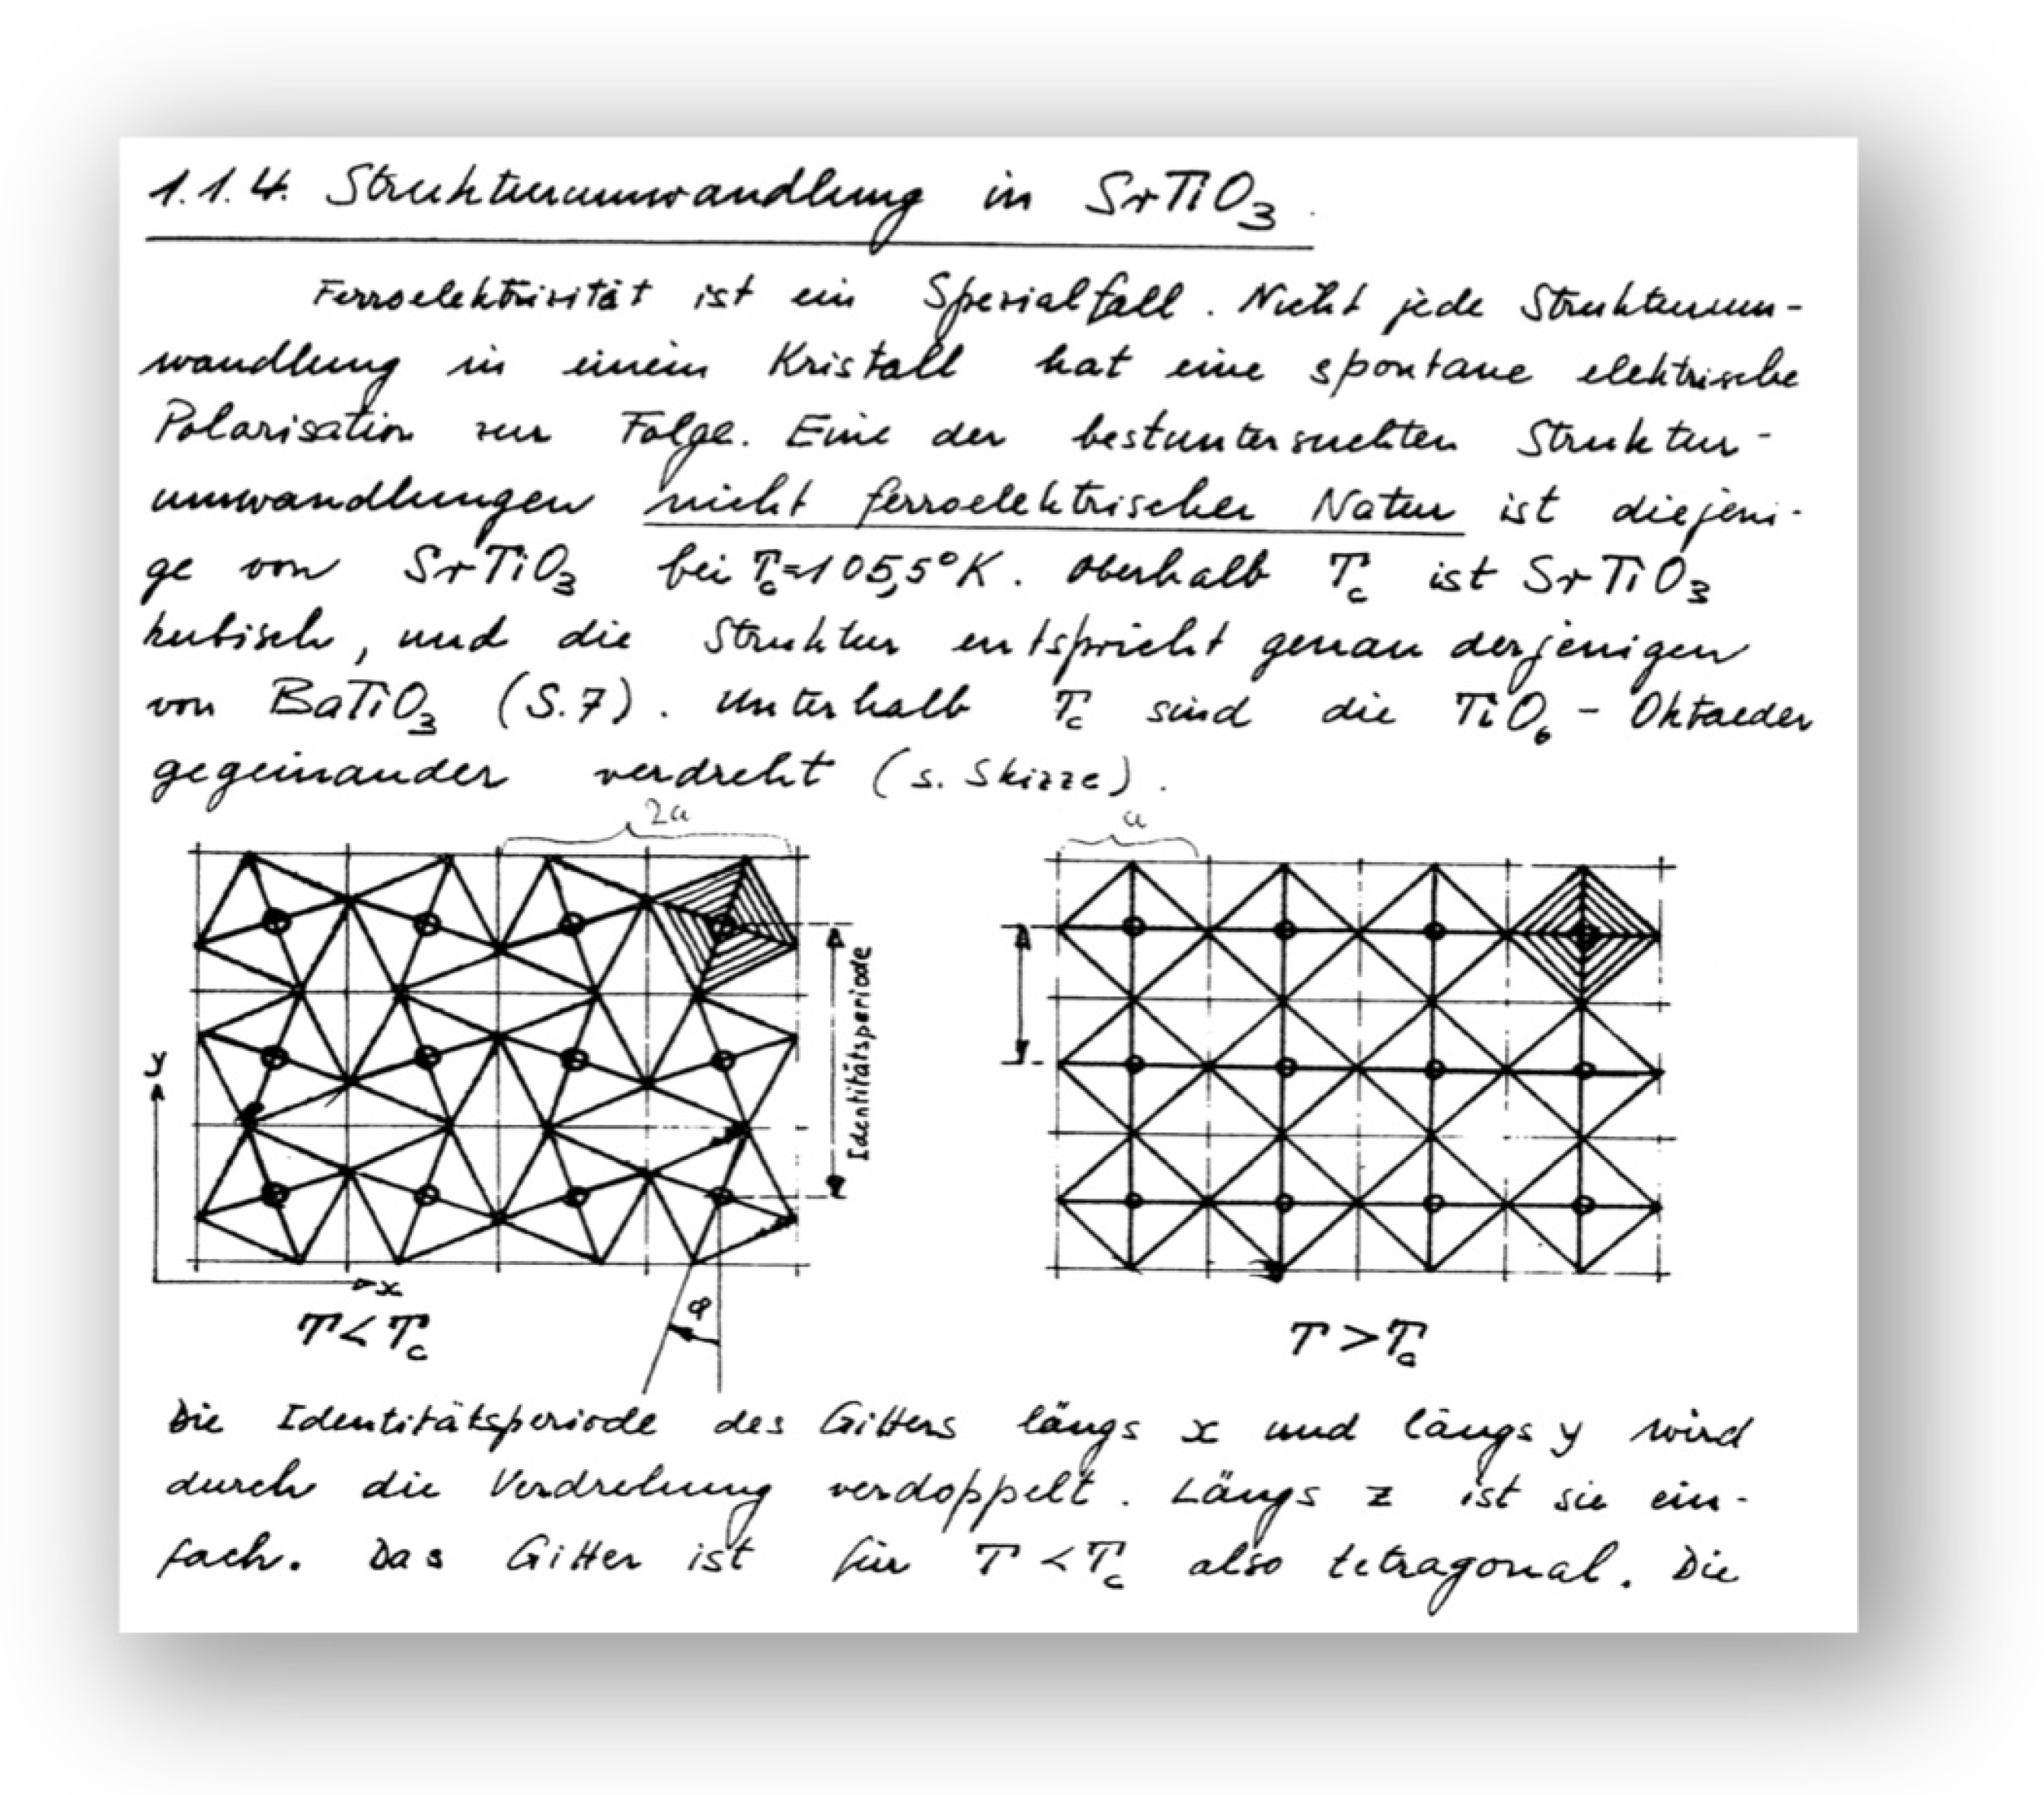 1.1.4. Strukturumwandlung in SrTiO₃.
Ferroelektrizität ist ein Spezialfall. Nicht jede Strukturum-
wandlung in einem Kristall hat eine spontane elektrische
Polarisation zur Folge. Eine der bestuntersuchten Struktur-
umwandlungen nicht ferroelektrischer Natur ist diejeni-
ge von SrTiO₃ bei T_c=105,5°K. Oberhalb T_c ist SrTiO₃
kubisch, und die Struktur entspricht genau derjenigen
von BaTiO₃ (S.7). Unterhalb T_c sind die TiO₆-Oktaeder
gegeinander verdreht (s. Skizze).
2a
a
Identitätsperiode
y
x
φ
T<T_c
T>T_c
Die Identitätsperiode des Gitters längs x und längs y wird
durch die Verdrehung verdoppelt. Längs z ist sie ein-
fach. Das Gitter ist für T<T_c also tetragonal. Die